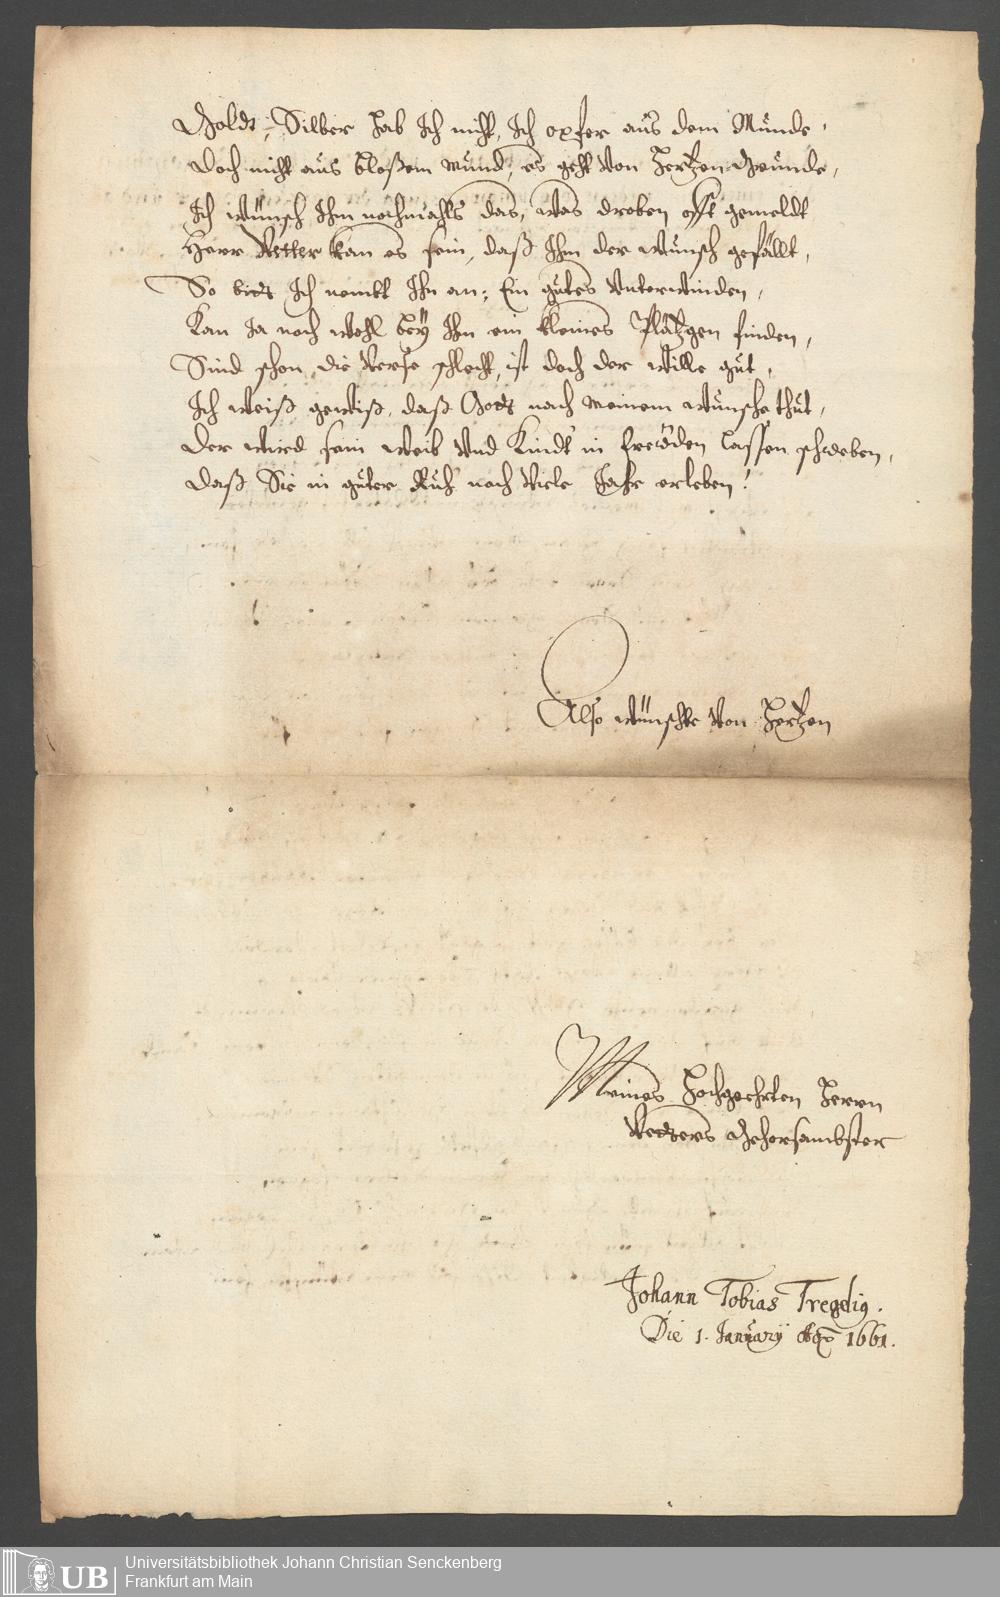 Goldt, Silber hab Ich nicht, Ich opfer aus dem Munde,
Doch nicht aus bloßem mund, es geht von Hertzen Grunde,
Ich wünsch Ihm nochmahls das, was droben offt gemeldt
Herr Vetter kan es sein, daß Ihm der wunsch gefällt,
So Ich Ihn an; Ein gutes Unterwinden,
Kan Ja noch wohl beÿ Ihn ein kleines Plätzgen finden,
Sind schon die Verse schlecht, ist doch der wille gut,
Ich weiß gewiß, daß Gott nach meinem wunsche thut,
Der wird sein weib und Kindt in frewden lassen schweben,
Daß Sie in guter Ruh noch viele Jahr erleben!
Also wünschte von Hertzen
Meines Hochgeehrten Herrn
Vetters Gehorsambster
Johann Tobias
Die 1. Januarÿ 1661.
Universitätsbibliothek Johann Christian Senckenberg
Frankfurt am Main
UB